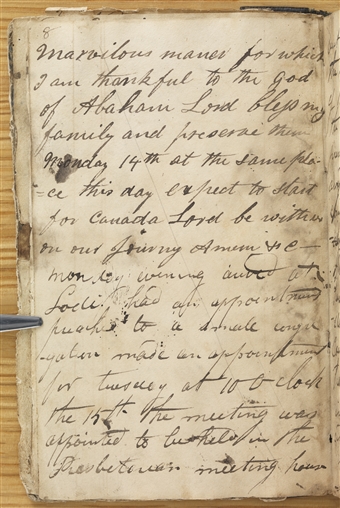 8
marvilous maner for which
I am thankful to the God
of Abaham Lord bless my
family and preserve them
Monday 14th at the same pla-
=ce this day expect to start
for Canada Lord be with us
on our Journy Amen &c—
monday evening arived at
Lodi had an appointment
preach to a small congr
gation made an appointment
for tuesdey at 10 O clock
the 15th the meeting was
appointed to be held in the
Presbeterian meeting house